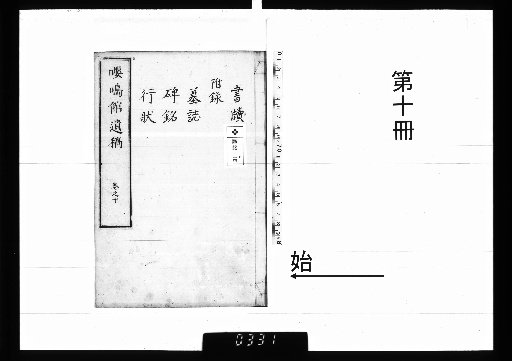 第十冊
始
書牘
附錄
墓誌
碑銘
行狀
嚶鳴館遺稿
卷之十
0331